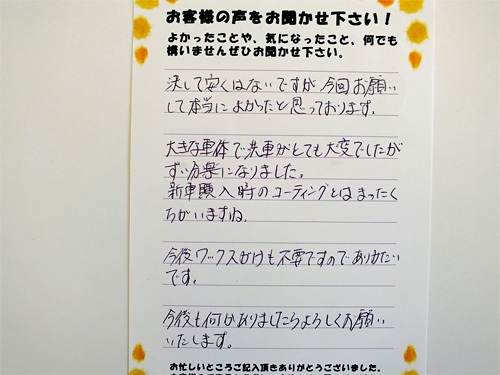 お客様の声をお聞かせ下さい！
よかったことや、気になったこと、何でも
構いませんぜひお聞かせ下さい。
決して安くはないですが今回お願い
して本当によかったと思っております。
大きな車体で洗車がとても大変でしたが
ずい分楽になりました。
新車購入時のコーティングとはまったく
ちがいますね。
今後ワックスがけも不要ですのでありがたい
です。
今後も何かありましたらよろしくお願い
いたします。
お忙しいところご記入頂きありがとうございました。